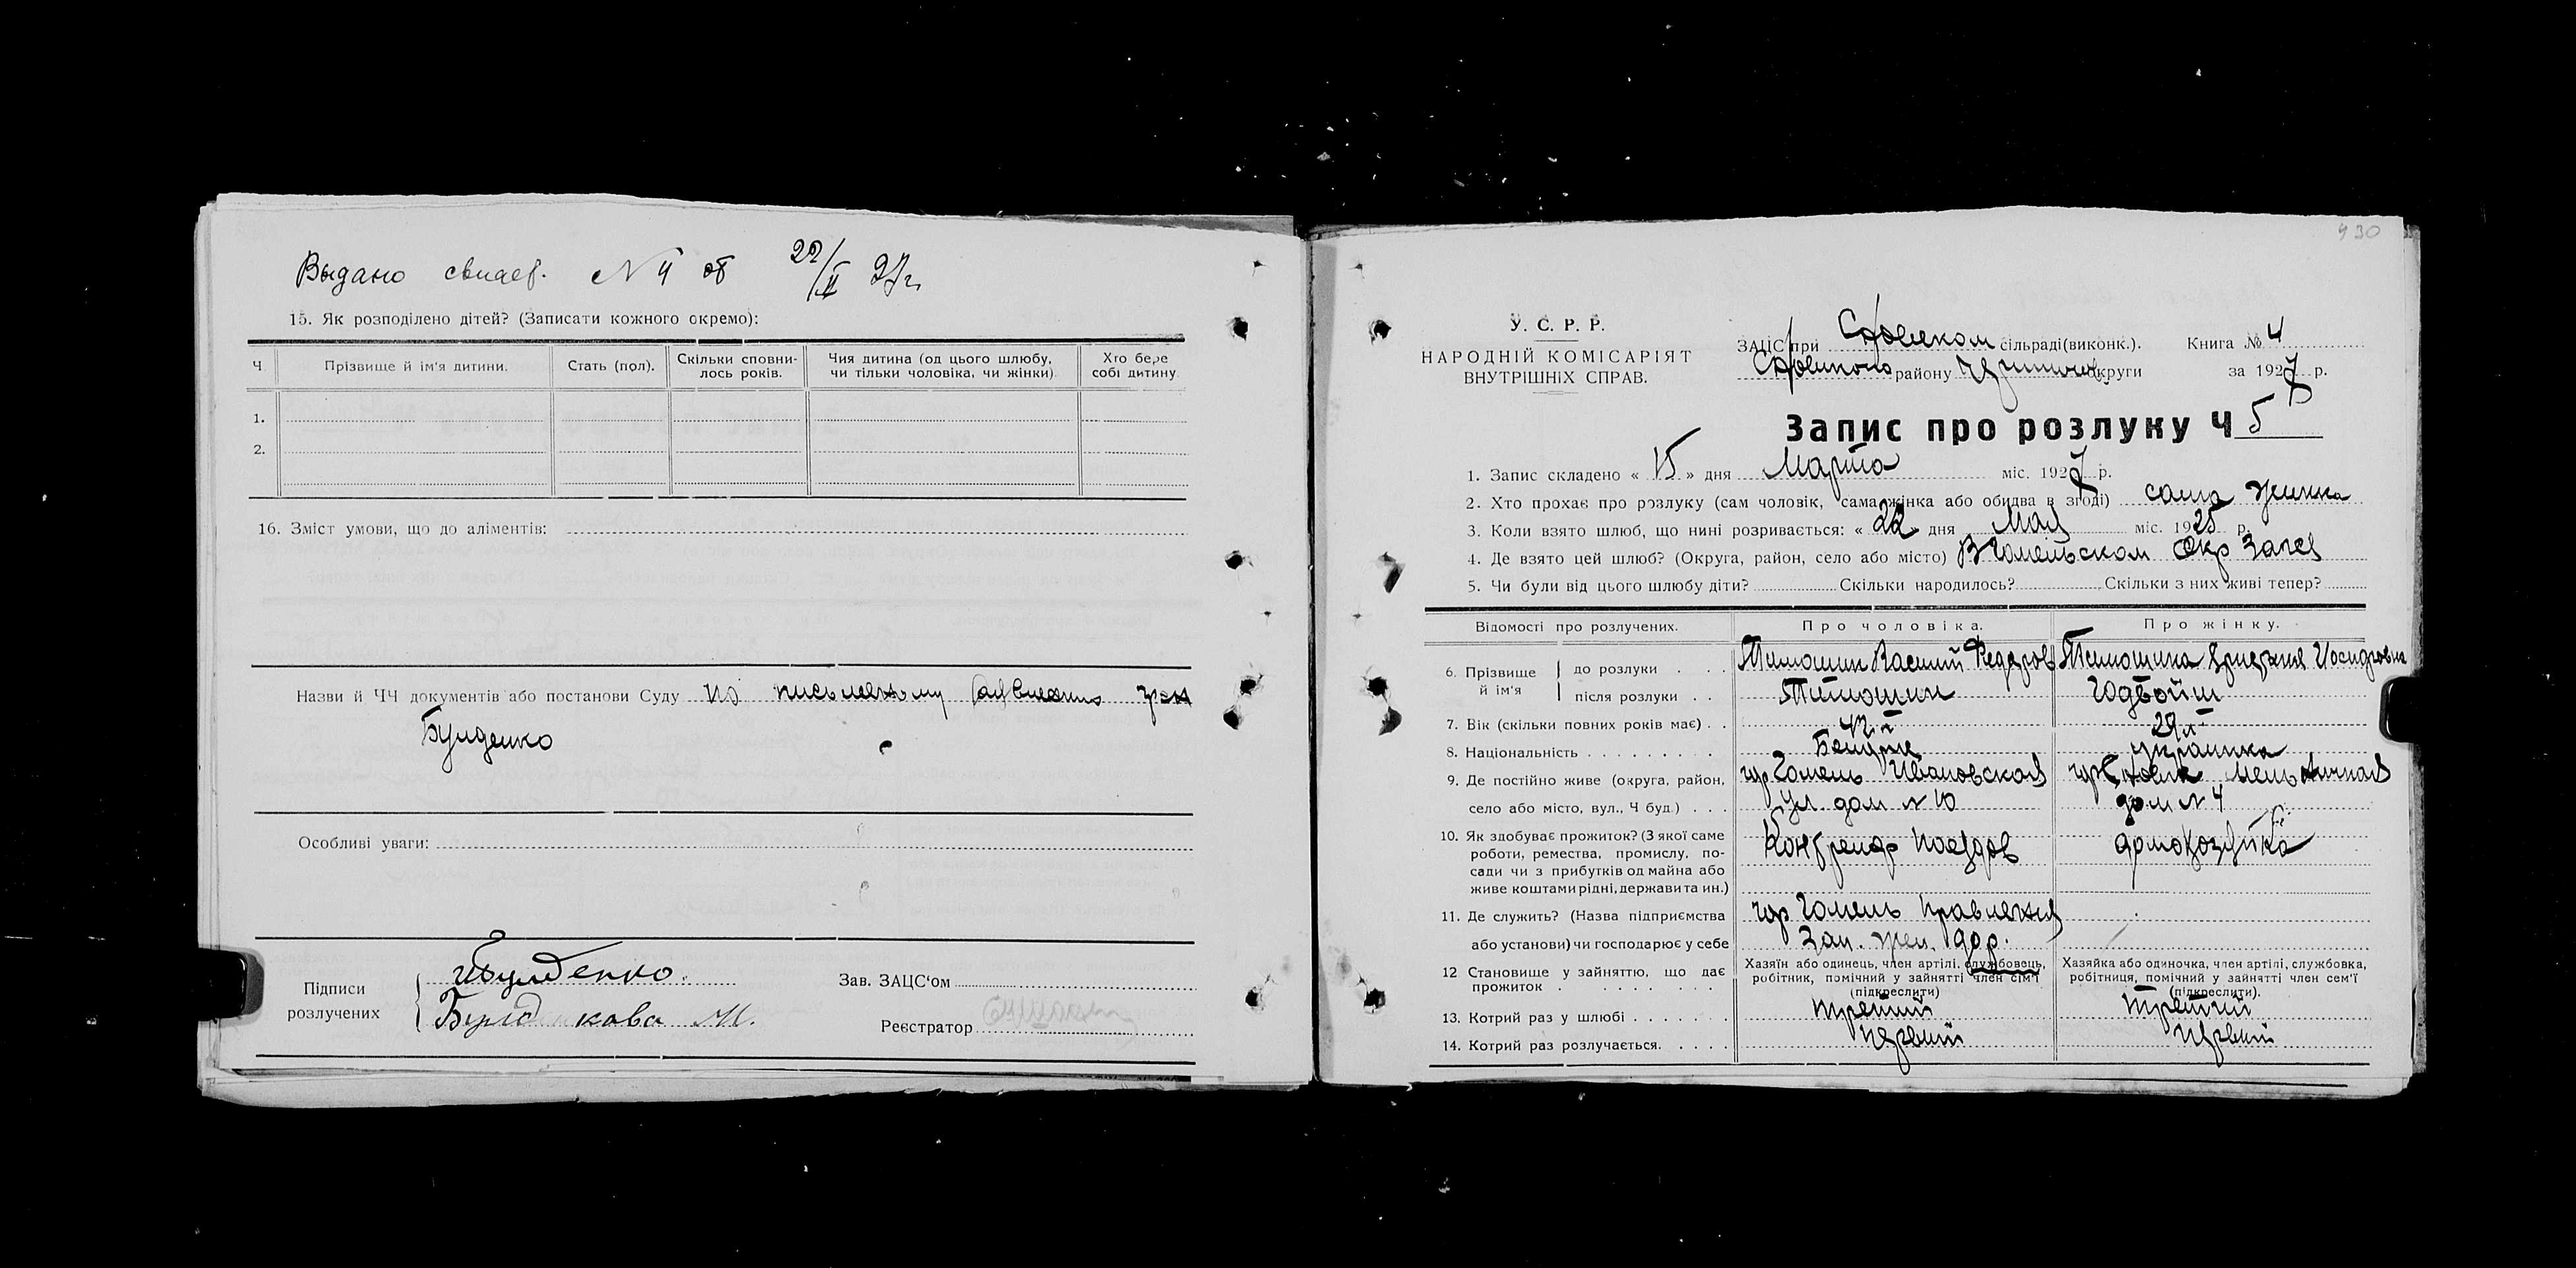 Выдано свидет. № 4 от 22/II 27 г.
15. Як розподілено дітей? (Записати кожного окремо):
Ч Прізвище й ім'я дитини. Стать (пол). Скільки сповнилось років. Чия дитина (од цього шлюбу, чи тільки чоловіка, чи жінки) Хто бере собі дитину
1.
2.
16. Зміст умови, що до аліментів:
Назви й ЧЧ документів або постанови Суду по письменному гр-на
Булденко
Особливі уваги:
Підписи розлучених
Булденко.
кова М.
Зав. ЗАЦС'ом
Реєстратор
430
У. С. Р. Р.
НАРОДНІЙ КОМІСАРІЯТ
ВНУТРІШНІХ СПРАВ.
ЗАЦС при сільраді (виконк.). Книга № 4
району округи за 1927 р.
Запис про розлуку Ч 5
1. Запис складено « 15 » дня Марта міс. 1927 р.
2. Хто прохає про розлуку (сам чоловік, сама жінка або обидва в згоді) сама жинка
3. Коли взято шлюб, що нині розривається: « 22 » дня Мая міс. 1925 р.
4. Де взято цей шлюб? (Округа, район, село або місто) В Гомельском Окр Загсе
5. Чи були від цього шлюбу діти? Скільки народилось? Скільки з них живі тепер?
Відомості про розлучених. Про чоловіка. Про жінку.
6. Прізвище й ім'я до розлуки Тимошин Василий Федоров Тимошина Иосифовна
після розлуки Тимошин Годвойш
7. Вік (скільки повних років має) 42 л 29 л
8. Національність украинка
9. Де постійно живе (округа, район, гор Гомель Ивановская гор Мельничная
село або місто, вул., Ч буд.) ул. дом № 10 дом № 4
10. Як здобуває прожиток? (З якої саме роботи, ремества, промислу, посади чи з прибутків од майна або живе коштами рідні, держави та ин.) Кондуктор поездов домохозяйка
11. Де служить? (Назва підприємства гор Гомель Правления
або установи) чи господарює у себе Зап. жел. дор.
12 Становище у зайняттю, що дає прожиток Хазяїн або одинець, член артілі, службовець, робітник, помічний у зайнятті член сім'ї (підкреслити) Хазяйка або одиночка, член артілі, службовка, робітниця, помічний у зайнятті член сем'ї (підкреслити).
13. Котрий раз у шлюбі третий третий
14. Котрий раз розлучається. первый первый